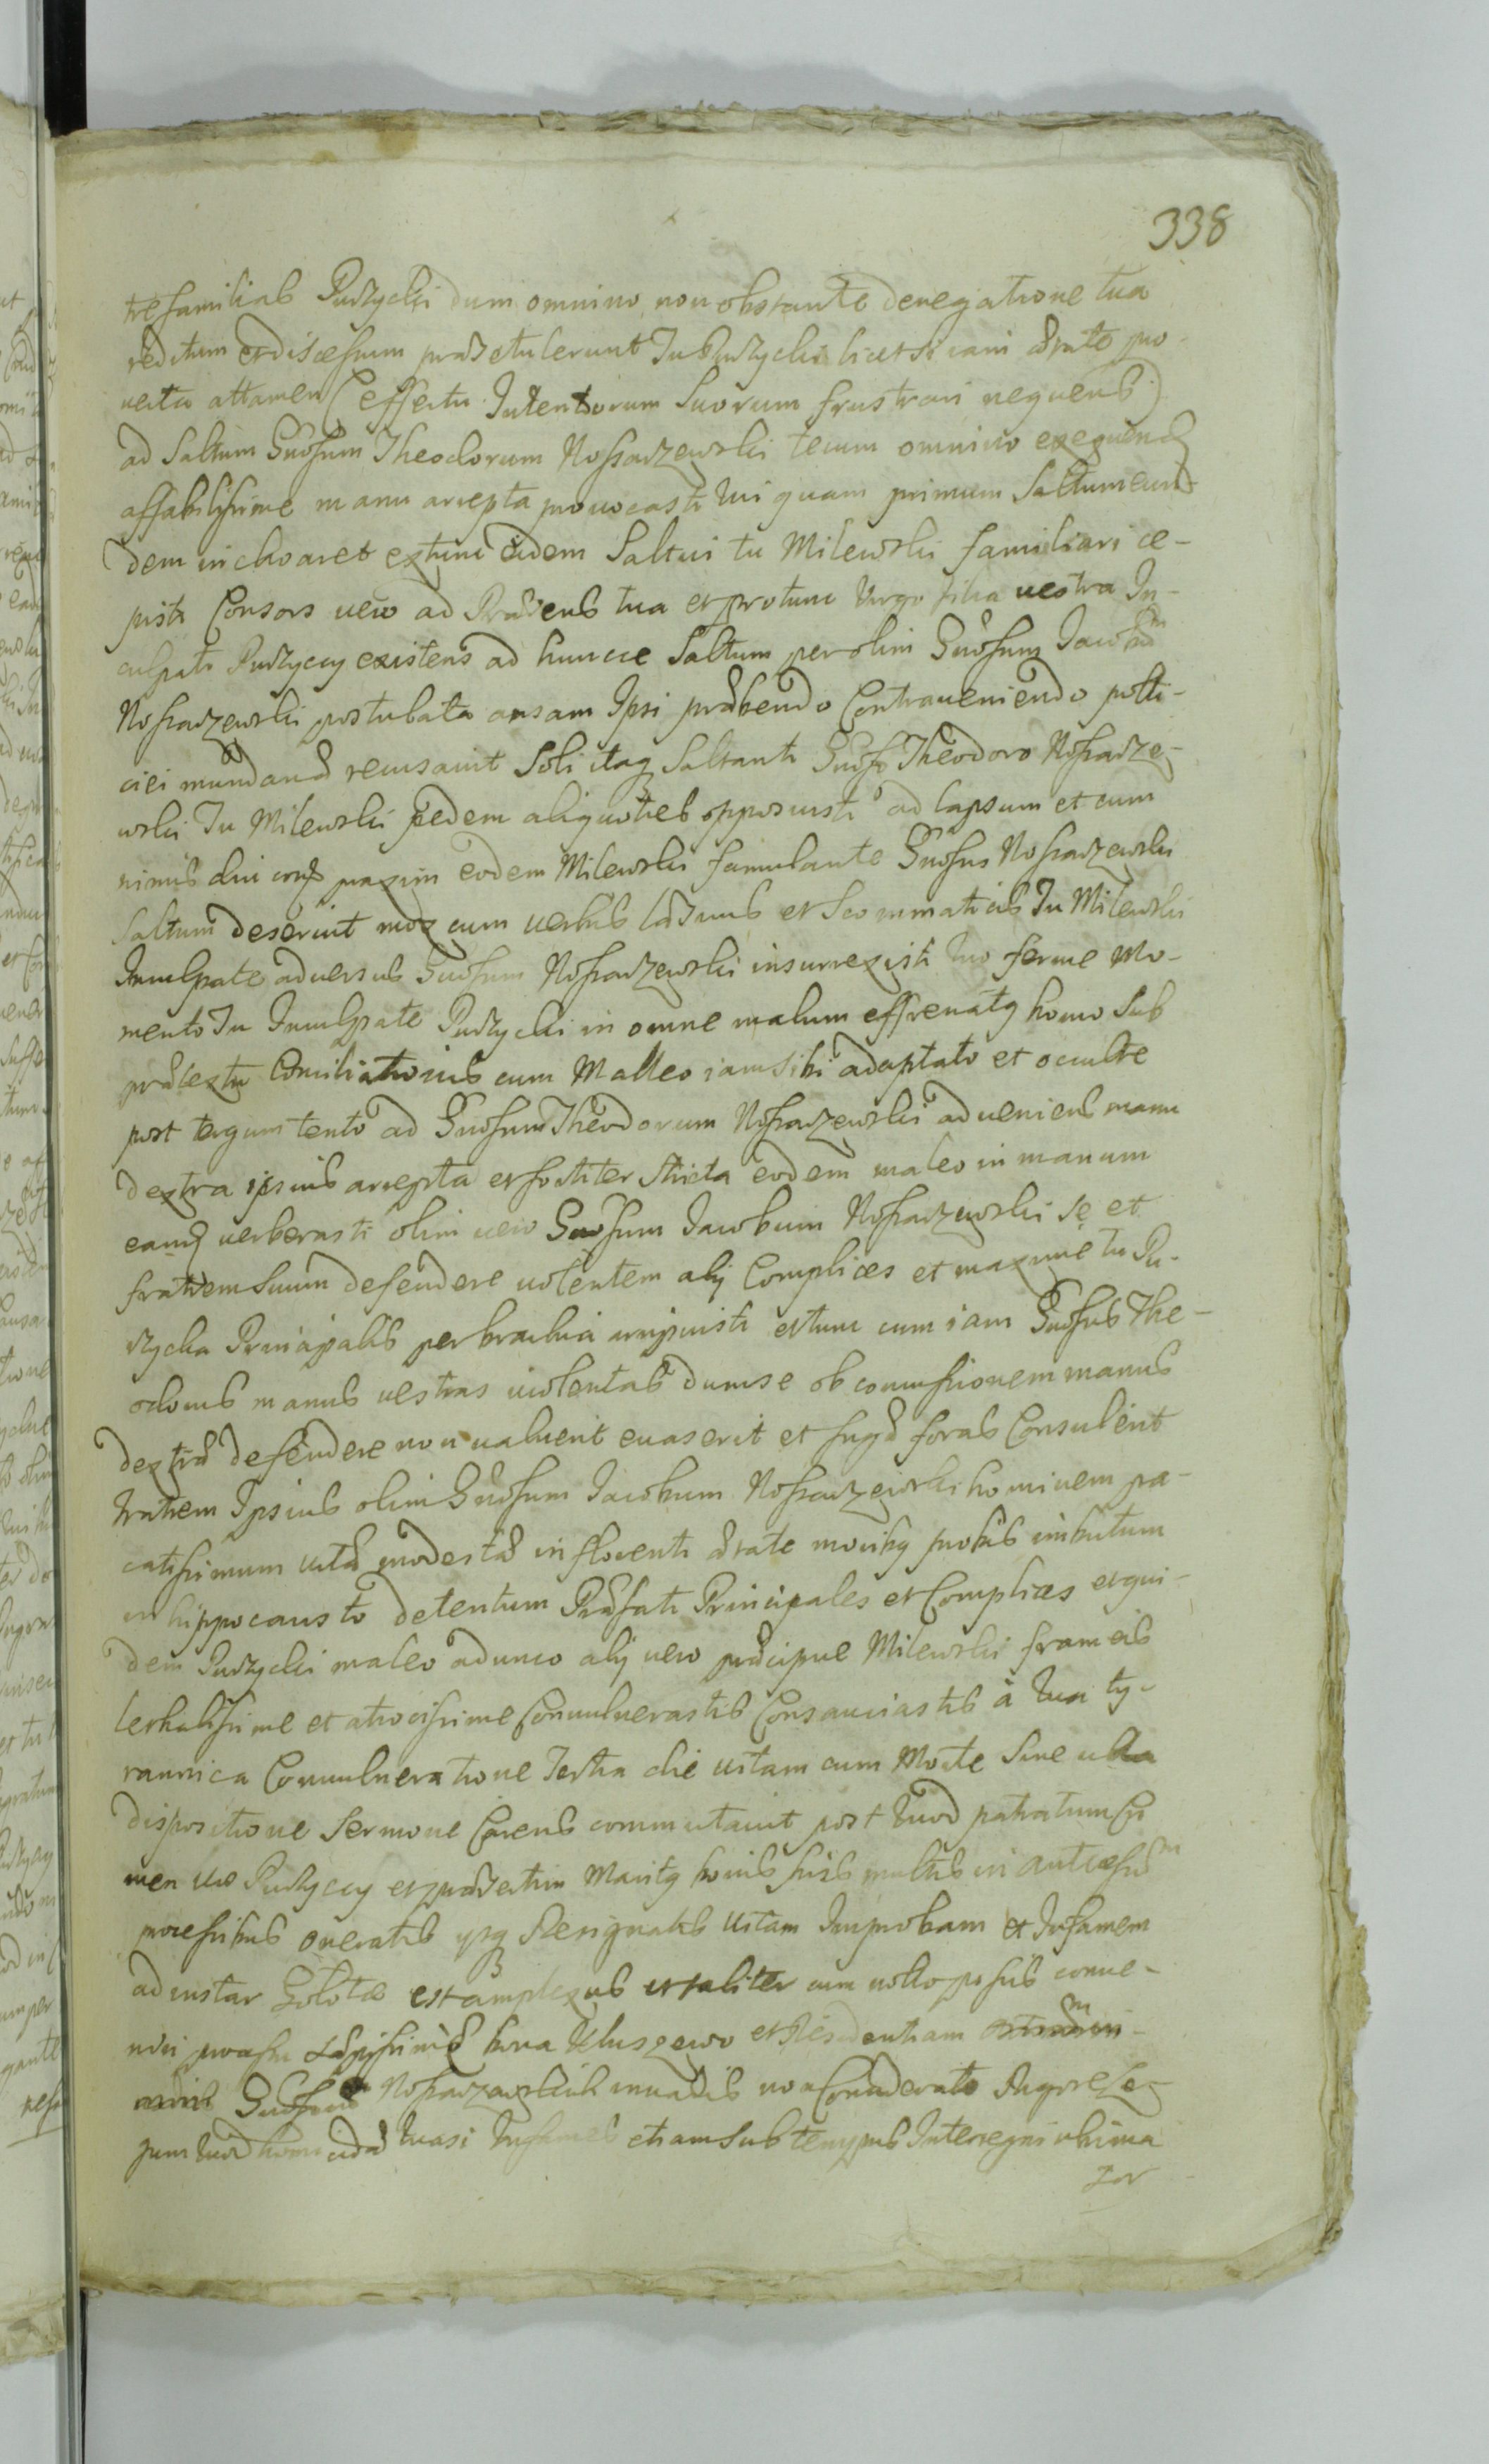 338
trefamilias Puszycki dum omnino non obstante denegatione tua
reditum et discessum praetulerunt Tu Puszycki licet si iam aetate pro-
uectu attamen (effectu Intentorum Suorum frustrari nequens)
ad Saltum Gnosum Theodorum Nossarzewski tecum omnino exequend
affabilissime manu accepta prouocasti Qui quam primum Saltum eun-
dem inchoaret extunc eidem Saltui tu Milewski familiari ce-
pisti Consors uero ad Praesens tua et protunc Virgo filia uestra In-
culpati Puszyccy existens ad huncce Saltum per olim Gnosum Jacobum
Nossarzewski postulata ansam Ipsi praebendo Contraueniendo polli-
ciei mundanae recusauit Soli itaq Saltanti Gnoso Theodoro Nossarze-
wski Tu Milewski pedem aliquoties opposuisti ad lapsum et cum
nimis diu eodem Milewski famulante Gnosus Nossarzewski
Saltum deseruit mox cum uerbis laesiuis et Scommaticis Tu Milewski
Inculpate aduersus Gnosum Nossarzewski insurrexisti Quo ferme Mo-
mento Tu Inculpate Puszycki in omne malum effrenatq homo Sub
praetextu Conciliationis cum Malleo iam sibi adaptato et occulte
post tergum tento ad Gnosum Theodorum Nossarzewski adueniens manu
dextra ipsius accepta et fortiter stricta eodem maleo in manum
eand uerberasti olim uero Gnosum Jacobum Nossarzewski se et
fratrem Suum defendere uolentem alij Complices et maxime tu Pu-
szycka Principalis per brachia arripuisti et tunc cum iam Gnosus The-
odorus manus uestras uiolentas dum se ob concussionem manus
dextrae defendere non ualuerit euaserit et fuga foras Consulerit
Fratrem Ipsius olim Gnosum Jacobum Nossarzewski hominem pa-
catissimum uitae modestae in florenti aetate moribq probis imbutum
in hippocausto detentum Praefati Principales et Complices et qui-
dem Puszycki maleo adunco alij uero praecipue Milewski frameis
lethalissime et atrocissime Conuulnerastis Consauciastis à Qua ty-
rannica Conuulneratione Tertia die uitam cum Morte Sine ulla
dispositione Sermone Carens commutauit post Quod patratum Cri
men uos Puszyccy et praesertim Maritq bonis suis multis in antecessum
processibus oneratis ipsq Resignatis Vitam Improbam et Infamem
ad instar Golotae est amplexus et taliter cum nullo possis conue-
niri processu saepissime bona Kluszewo et Residentiam
Gnosorum Nossarzewskich inuadis non Considerato Rigore Le-
gum Quod homicidae Quasi Infames etiam Sub tempus Interregni ultima